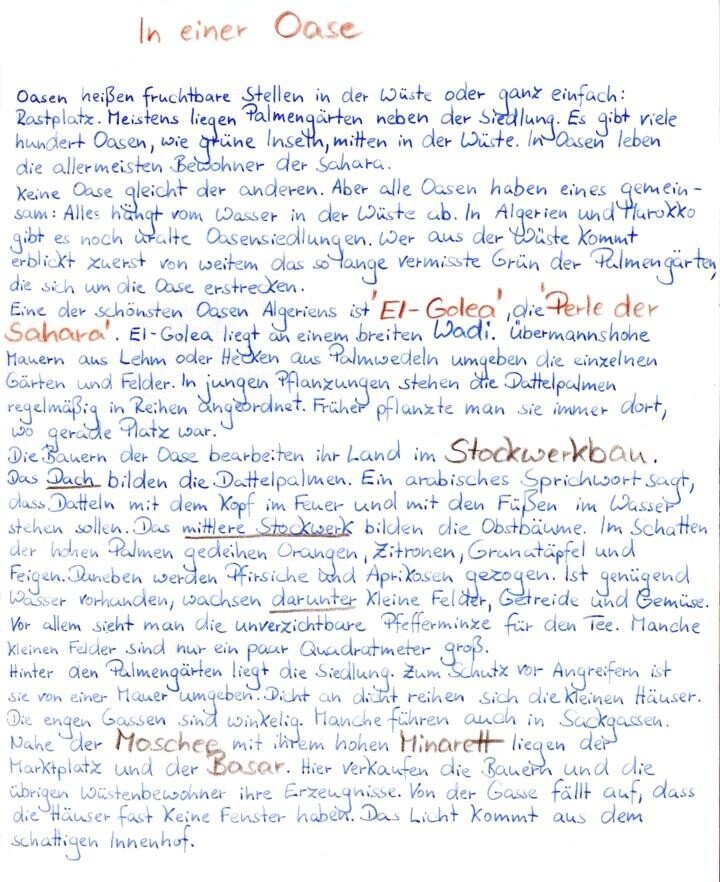 In einer Oase
Oasen heißen fruchtbare Stellen in der Wüste oder ganz einfach:
Rastplatz. Meistens liegen Palmengärten neben der Siedlung. Es gibt viele
hundert Oasen, wie grüne Inseln, mitten in der Wüste. In Oasen leben
die allermeisten Bewohner der Sahara.
Keine Oase gleicht der anderen. Aber alle Oasen haben eines gemein-
sam: Alles hängt vom Wasser in der Wüste ab. In Algerien und Marokko
gibt es noch uralte Oasensiedlungen. Wer aus der Wüste kommt
erblickt zuerst von weitem das so lange vermisste Grün der Palmengärten,
die sich um die Oase erstrecken.
Eine der schönsten Oasen Algeriens ist 'El-Golea', die 'Perle der
Sahara'. El-Golea liegt an einem breiten Wadi. Übermannshohe
Mauern aus Lehm oder Hecken aus Palmwedeln umgeben die einzelnen
Gärten und Felder. In jungen Pflanzungen stehen die Dattelpalmen
regelmäßig in Reihen angeordnet. Früher pflanzte man sie immer dort,
wo gerade Platz war.
Die Bauern der Oase bearbeiten ihr Land im Stockwerkbau.
Das Dach bilden die Dattelpalmen. Ein arabisches Sprichwort sagt,
dass Datteln mit dem Kopf im Feuer und mit den Füßen im Wasser
stehen sollen. Das mittlere Stockwerk bilden die Obstbäume. Im Schatten
der hohen Palmen gedeihen Orangen, Zitronen, Granatäpfel und
Feigen. Daneben werden Pfirsiche und Aprikosen gezogen. Ist genügend
Wasser vorhanden, wachsen darunter kleine Felder, Getreide und Gemüse.
Vor allem sieht man die unverzichtbare Pfefferminze für den Tee. Manche
kleinen Felder sind nur ein paar Quadratmeter groß.
Hinter den Palmengärten liegt die Siedlung. Zum Schutz vor Angreifern ist
sie von einer Mauer umgeben. Dicht an dicht reihen sich die kleinen Häuser.
Die engen Gassen sind winkelig. Manche führen auch in Sackgassen.
Nahe der Moschee mit ihrem hohen Minarett liegen der
Marktplatz und der Basar. Hier verkaufen die Bauern und die
übrigen Wüstenbewohner ihre Erzeugnisse. Von der Gasse fällt auf, dass
die Häuser fast keine Fenster haben. Das Licht kommt aus dem
schattigen Innenhof.